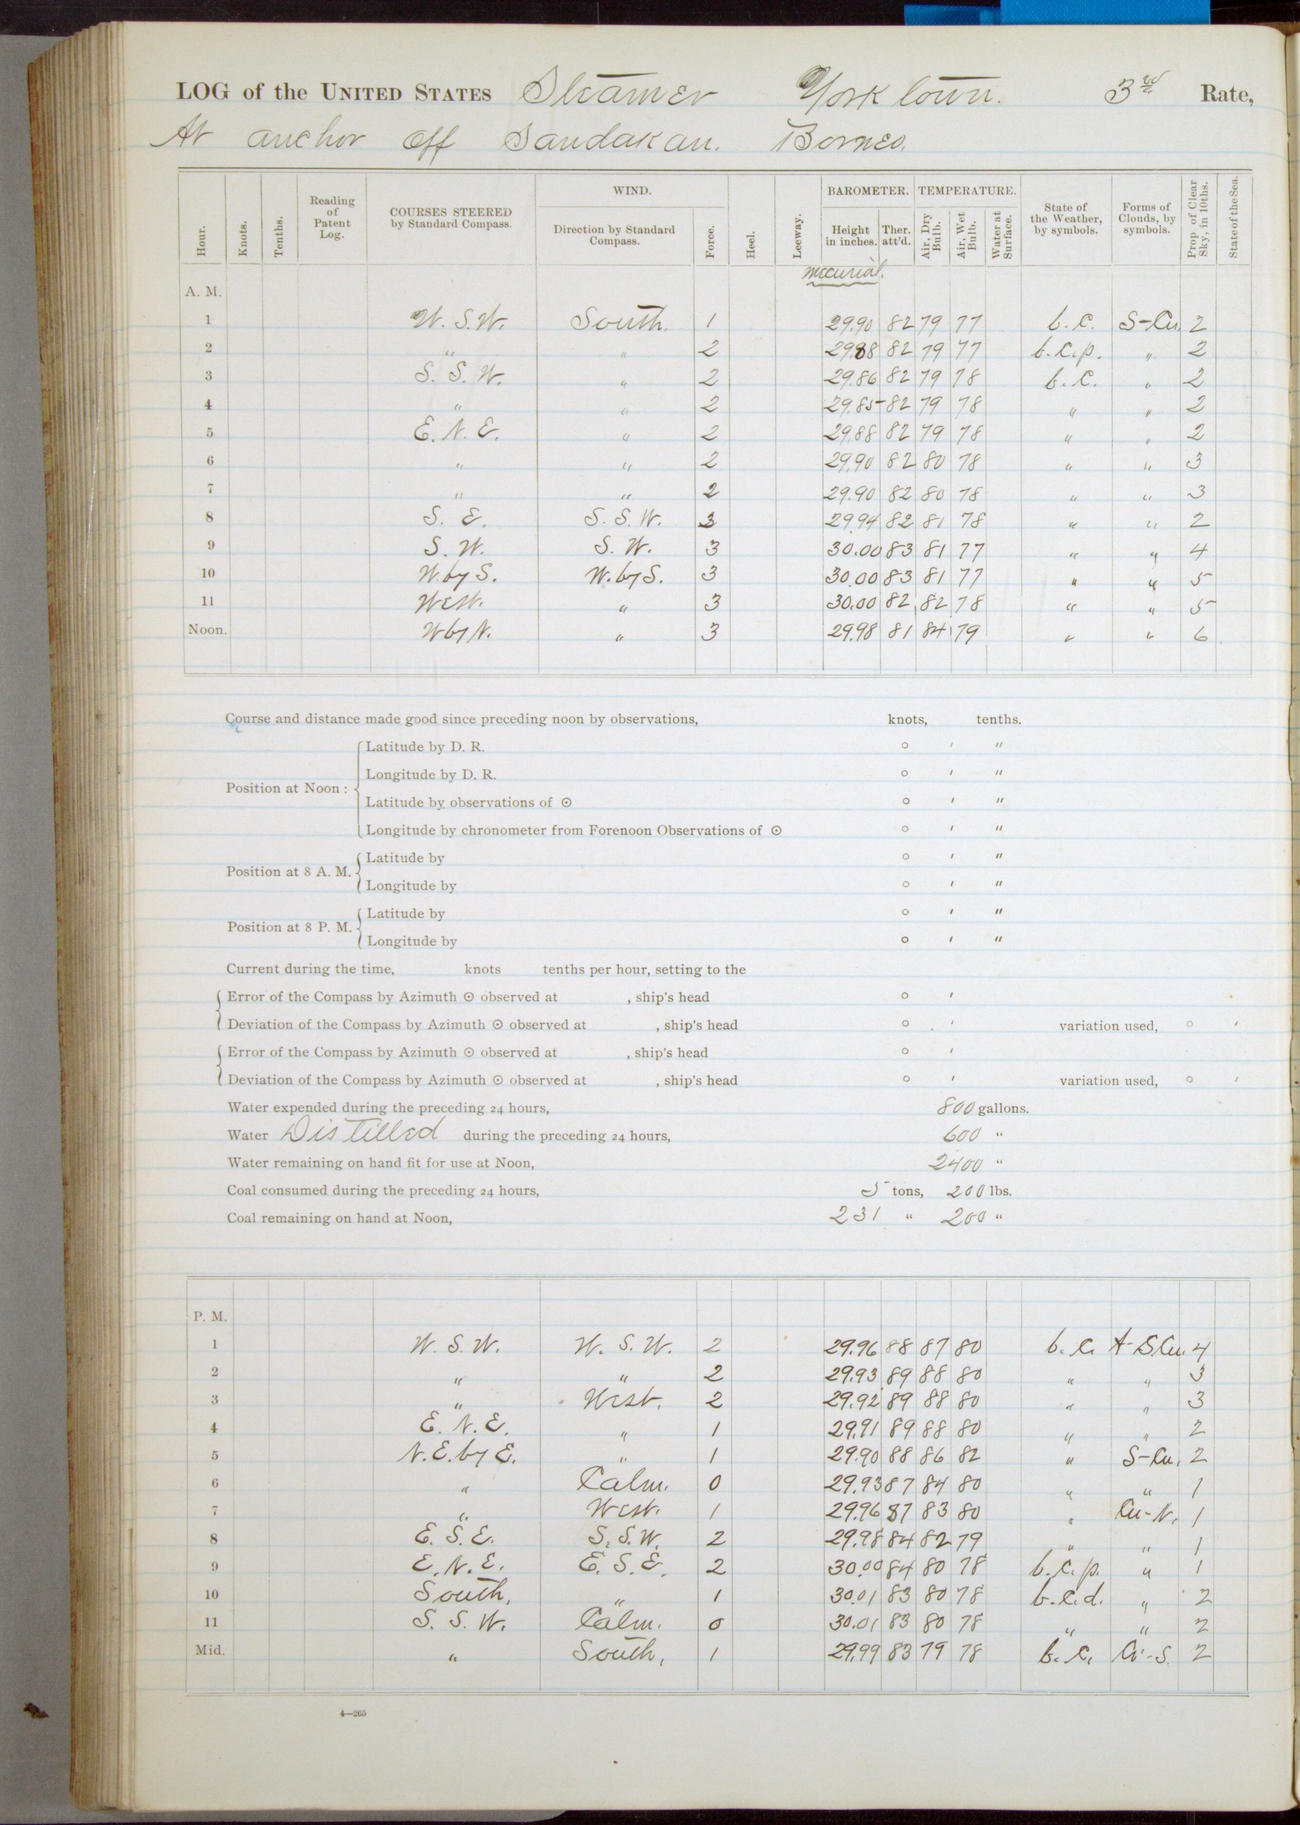 LOG of the UNITED STATES Steamer Yorktown. 3rd Rate,
At anchor off Sandakan. Borneo.
Hour. Knots. Tenths. Reading of Patent Log. COURSES STEERED by Standard Compass. WIND. Direction by Standard Compass. Force. Heel. Leeway. BAROMETER. Height in inches. Ther. att'd. TEMPERATURE. Air, Dry Bulb. Air, Wet Bulb. Water at Surface. State of the Weather, by symbols. Forms of Clouds, by symbols. Prop. of Clear Sky, in 10ths. State of the Sea.
mecurial.
A. M.
1 W. S. W. South. 1 29.90 82 79 77 b. c. S-Cu. 2
2 " " 2 29.88 82 79 77 b. c. p. " 2
3 S. S. W. " 2 29.86 82 79 78 b. c. " 2
4 " " 2 29.85 82 79 78 " " 2
5 E. N. E. " 2 29.88 82 79 78 " " 2
6 " " 2 29.90 82 80 78 " " 3
7 " " 2 29.90 82 80 78 " " 3
8 S. E. S. S. W. 3 29.94 82 81 78 " " 2
9 S. W. S. W. 3 30.00 83 81 77 " " 4
10 W. by S. W. by S. 3 30.00 83 81 77 " " 5
11 West. " 3 30.00 82 82 78 " " 5
Noon. W by N. " 3 29.98 81 84 79 " " 6
Course and distance made good since preceding noon by observations, knots, tenths.
Position at Noon :
Latitude by D. R. ° ′ ″
Longitude by D. R. ° ′ ″
Latitude by observations of ☉ ° ′ ″
Longitude by chronometer from Forenoon Observations of ☉ ° ′ ″
Position at 8 A. M.
Latitude by ° ′ ″
Longitude by ° ′ ″
Position at 8 P. M.
Latitude by ° ′ ″
Longitude by ° ′ ″
Current during the time, knots tenths per hour, setting to the
Error of the Compass by Azimuth ☉ observed at , ship's head ° ′
Deviation of the Compass by Azimuth ☉ observed at , ship's head ° ′ variation used, ° ′
Error of the Compass by Azimuth ☉ observed at , ship's head ° ′
Deviation of the Compass by Azimuth ☉ observed at , ship's head ° ′ variation used, ° ′
Water expended during the preceding 24 hours, 800 gallons.
Water Distilled during the preceding 24 hours, 600 "
Water remaining on hand fit for use at Noon, 2400 "
Coal consumed during the preceding 24 hours, 5 tons, 200 lbs.
Coal remaining on hand at Noon, 231 " 200 "
P. M.
1 W. S. W. W. S. W. 2 29.96 88 87 80 b. c. A-S Cu. 4
2 " " 2 29.93 89 88 80 " " 3
3 " West. 2 29.92 89 88 80 " " 3
4 E. N. E. " 1 29.91 89 88 80 " " 2
5 N. E. by E. " 1 29.90 88 86 82 " S-Cu. 2
6 " Calm. 0 29.93 87 84 80 " " 1
7 " West. 1 29.96 87 83 80 " Cu-N. 1
8 E. S. E. S. S. W. 2 29.98 84 82 79 " " 1
9 E. N. E. E. S. E. 2 30.00 84 80 78 b. c. p. " 1
10 South, " 1 30.01 83 80 78 b. c. d. " 2
11 S. S. W. Calm. 0 30.01 83 80 78 " " 2
Mid. " South, 1 29.99 83 79 78 b. c. Ci-S. 2
4—265